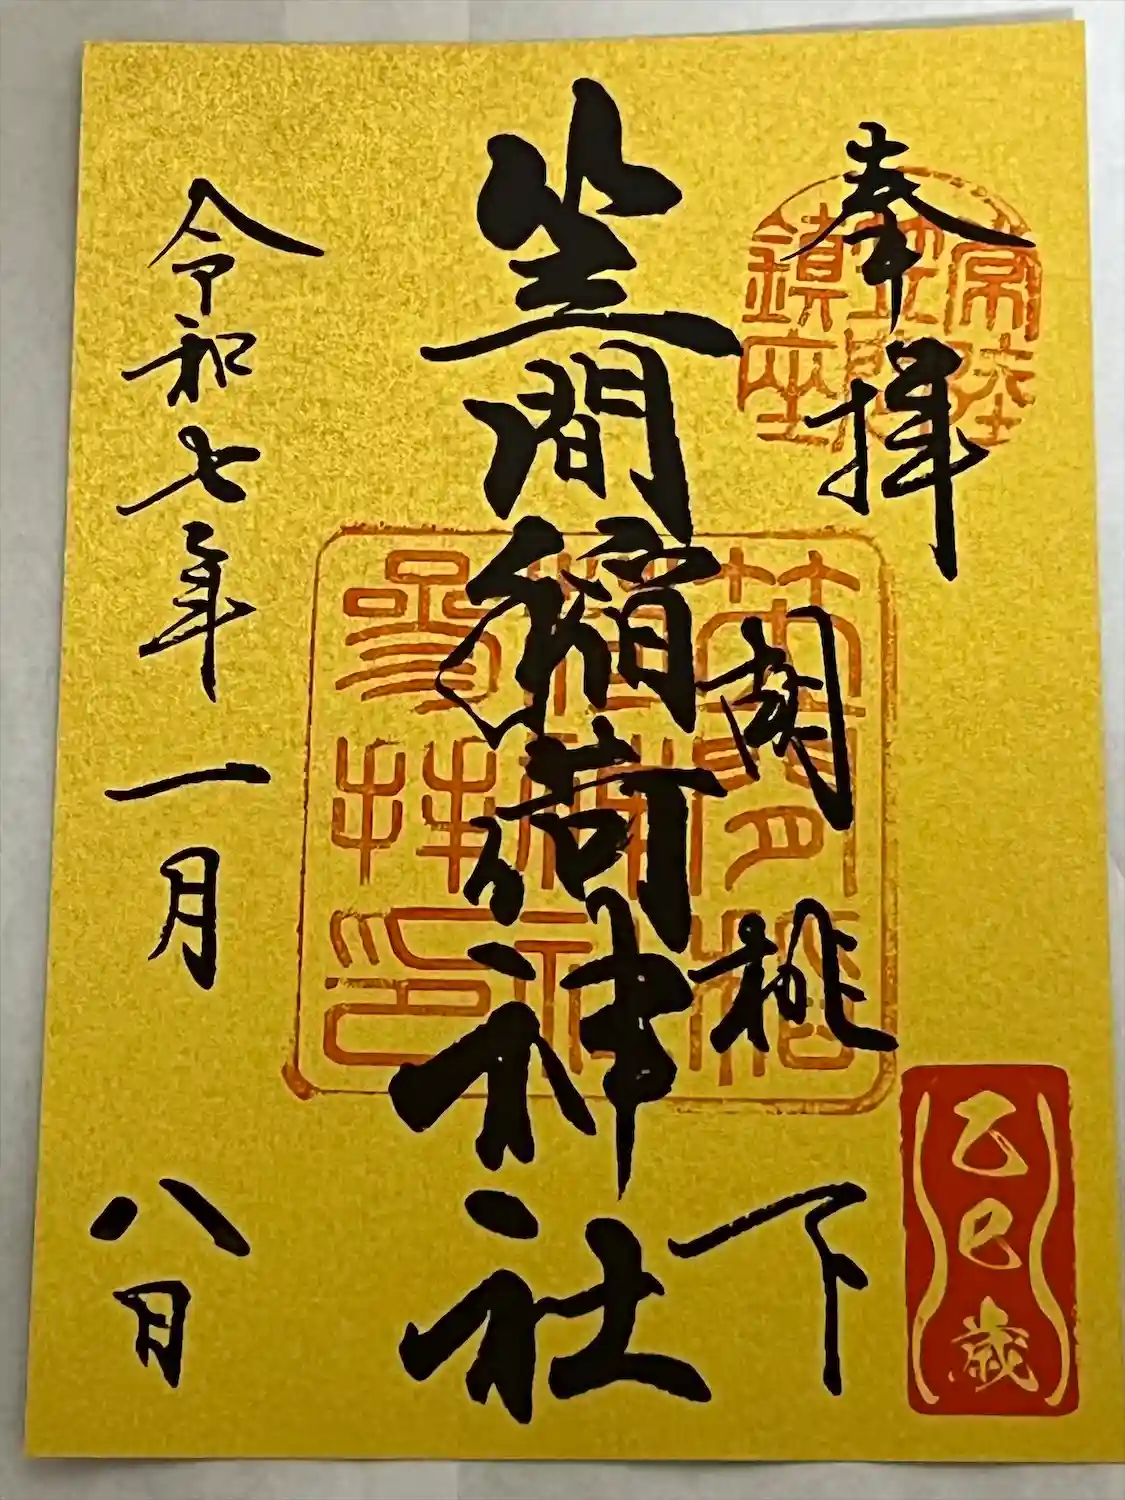 奉拝
常陸
笠間
鎮座
胡桃下
乙巳歳
笠間稲荷神社
笠間稲
荷神社
参拝印
令和七年一月八日